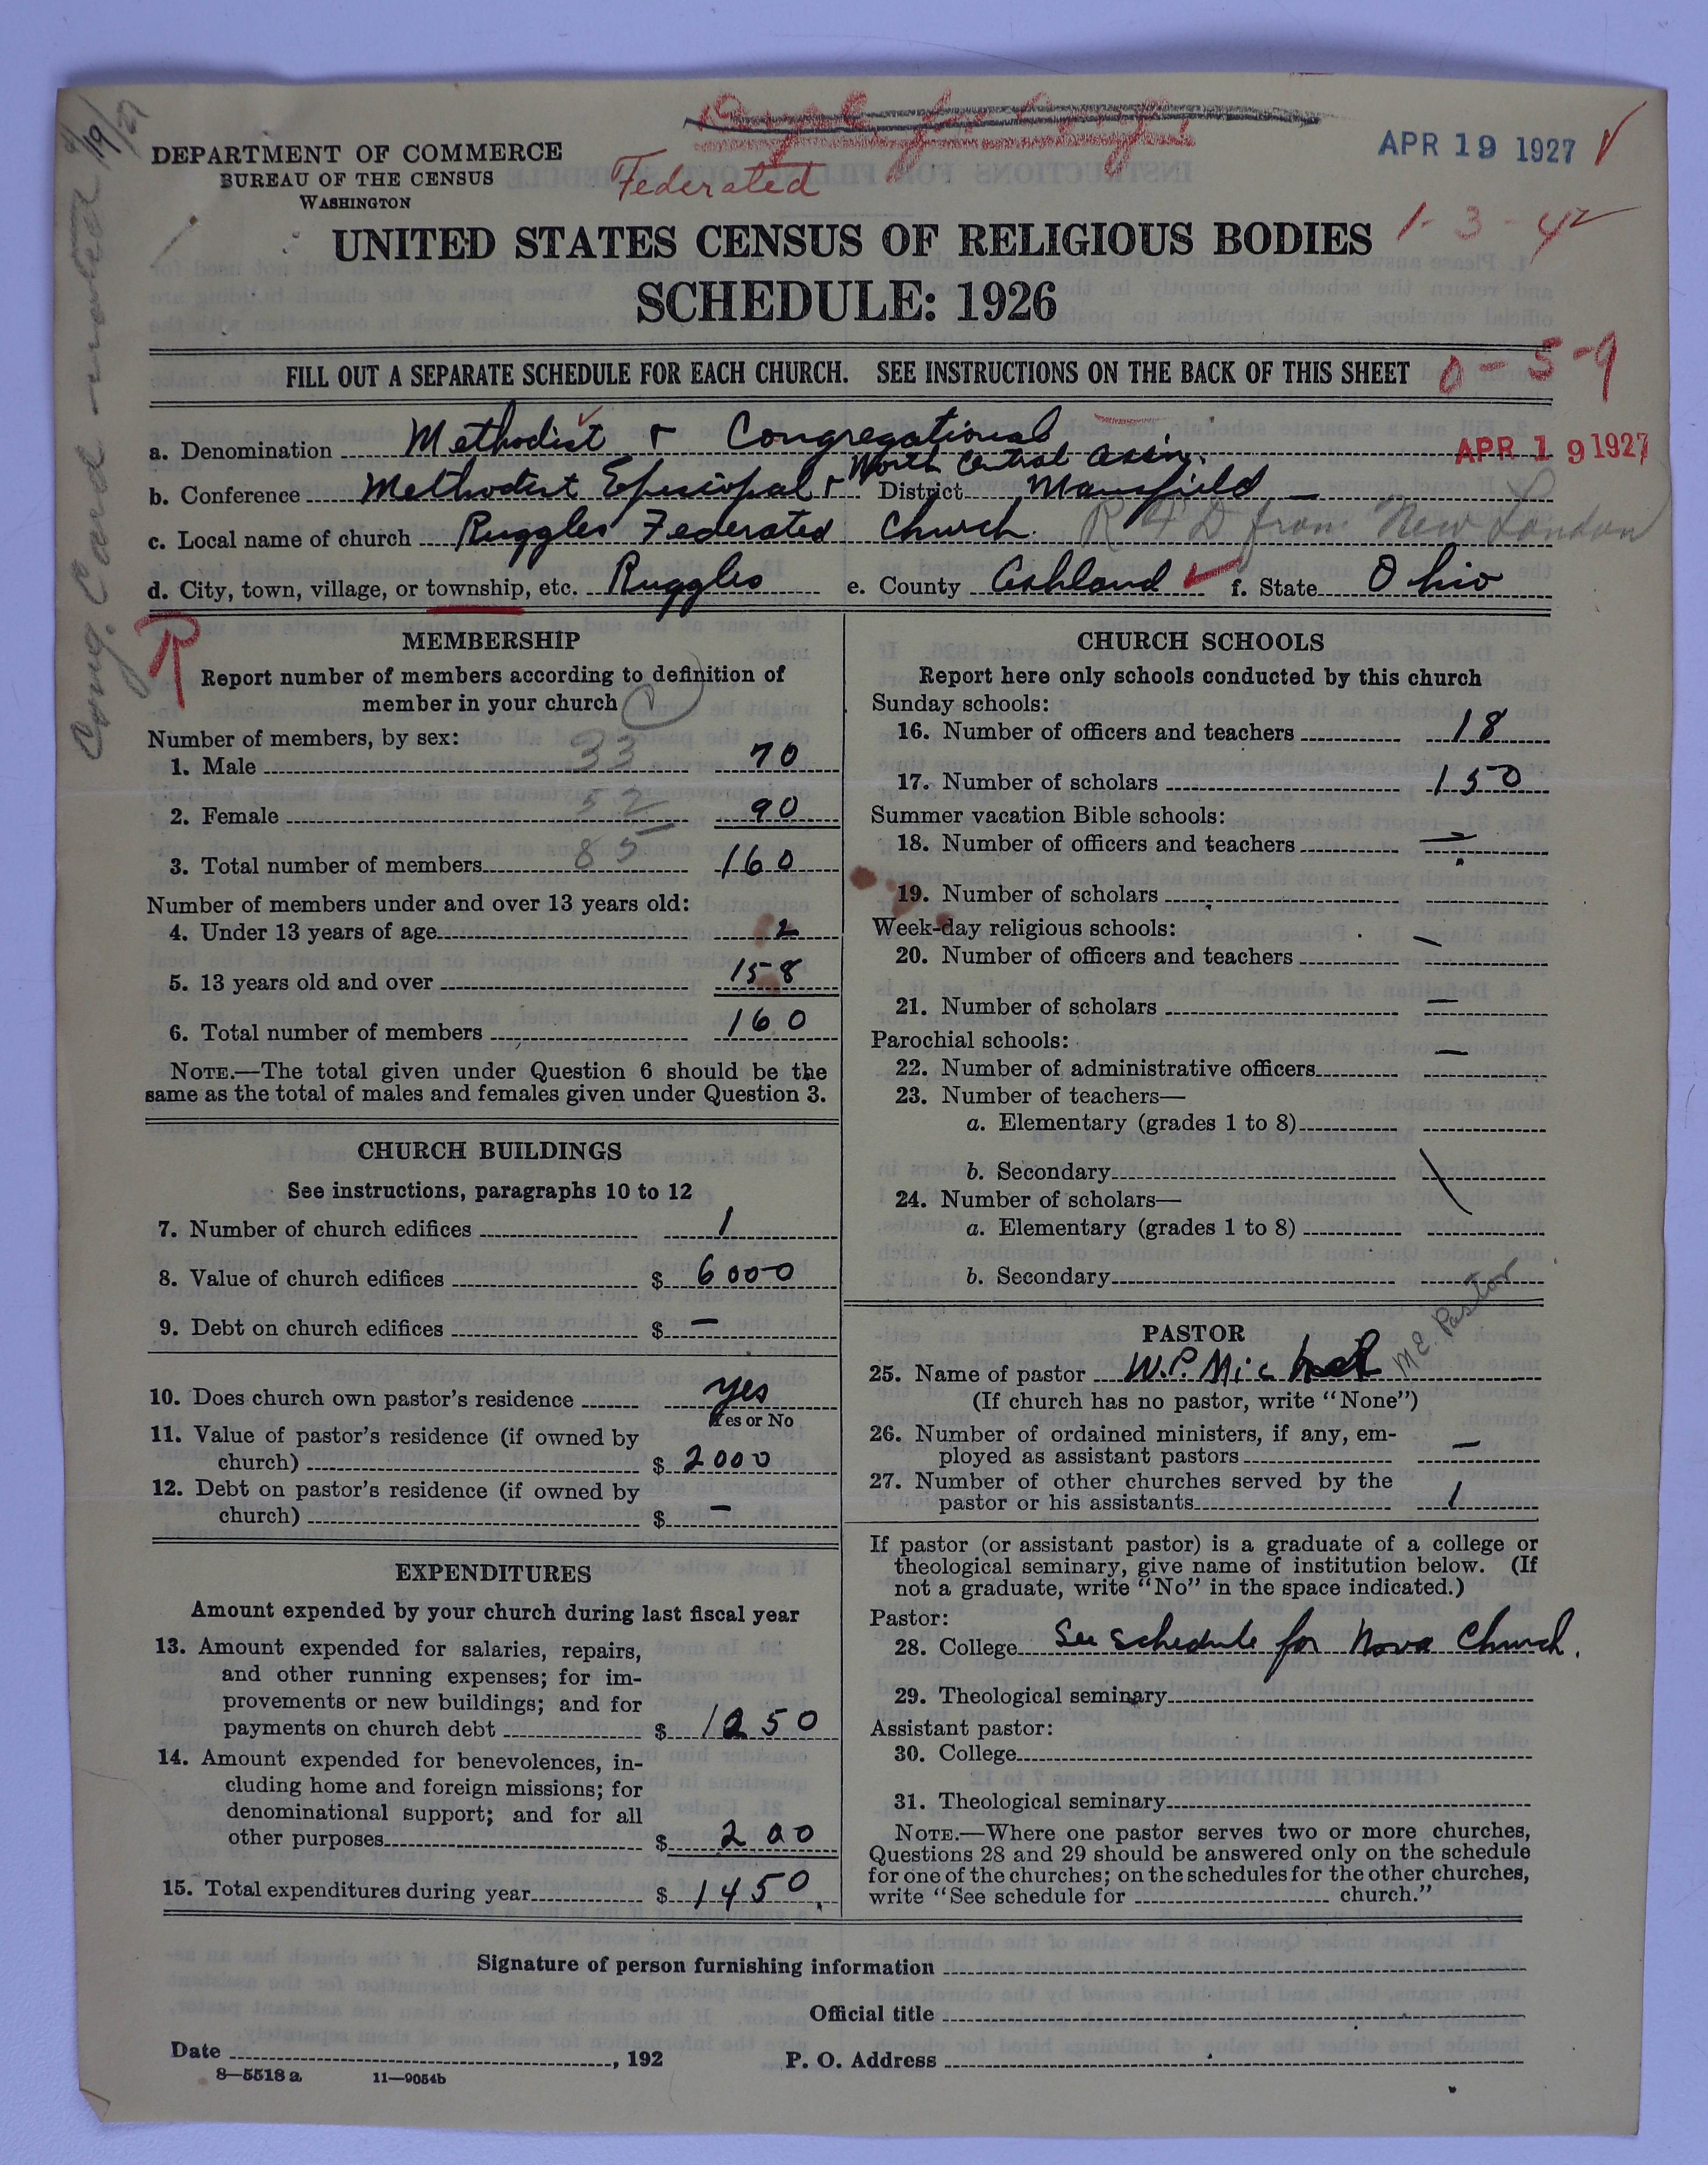 4/19/27
Cong. Card — mailed
DEPARTMENT OF COMMERCE
BUREAU OF THE CENSUS
WASHINGTON
Federated
APR 19 1927
1-3-42
UNITED STATES CENSUS OF RELIGIOUS BODIES
SCHEDULE: 1926
FILL OUT A SEPARATE SCHEDULE FOR EACH CHURCH. SEE INSTRUCTIONS ON THE BACK OF THIS SHEET
0-5-9
a. Denomination Methodist & Congregational
APR 19 1927
North Central Assn.
b. Conference Methodist Episcopal & District Mansfield —
c. Local name of church Ruggles Federated Church. RFD from New London
d. City, town, village, or township, etc. Ruggles e. County Ashland f. State Ohio
R
MEMBERSHIP
Report number of members according to definition of
member in your church
Number of members, by sex:
1. Male 33 70
2. Female 52 90
3. Total number of members 85 160
Number of members under and over 13 years old:
4. Under 13 years of age 2
5. 13 years old and over 158
6. Total number of members 160
NOTE.—The total given under Question 6 should be the
same as the total of males and females given under Question 3.
CHURCH BUILDINGS
See instructions, paragraphs 10 to 12
7. Number of church edifices 1
8. Value of church edifices $ 6000
9. Debt on church edifices $ —
10. Does church own pastor's residence yes
Yes or No
11. Value of pastor's residence (if owned by
church) $ 2000
12. Debt on pastor's residence (if owned by
church) $ —
EXPENDITURES
Amount expended by your church during last fiscal year
13. Amount expended for salaries, repairs,
and other running expenses; for im-
provements or new buildings; and for
payments on church debt $ 1250
14. Amount expended for benevolences, in-
cluding home and foreign missions; for
denominational support; and for all
other purposes $ 200
15. Total expenditures during year $ 1450.
CHURCH SCHOOLS
Report here only schools conducted by this church
Sunday schools:
16. Number of officers and teachers 18
17. Number of scholars 150
Summer vacation Bible schools:
18. Number of officers and teachers —
19. Number of scholars
Week-day religious schools:
20. Number of officers and teachers —
21. Number of scholars —
Parochial schools:
22. Number of administrative officers —
23. Number of teachers—
a. Elementary (grades 1 to 8)
b. Secondary
24. Number of scholars—
a. Elementary (grades 1 to 8)
b. Secondary
PASTOR
M.E. Pastor
25. Name of pastor W.P. Michel
(If church has no pastor, write "None")
26. Number of ordained ministers, if any, em-
ployed as assistant pastors —
27. Number of other churches served by the
pastor or his assistants 1
If pastor (or assistant pastor) is a graduate of a college or
theological seminary, give name of institution below. (If
not a graduate, write "No" in the space indicated.)
Pastor:
28. College See schedule for Nova Church.
29. Theological seminary
Assistant pastor:
30. College
31. Theological seminary
NOTE.—Where one pastor serves two or more churches,
Questions 28 and 29 should be answered only on the schedule
for one of the churches; on the schedules for the other churches,
write "See schedule for church."
Signature of person furnishing information
Official title
Date , 192 P. O. Address
8—5518 a 11—9054b